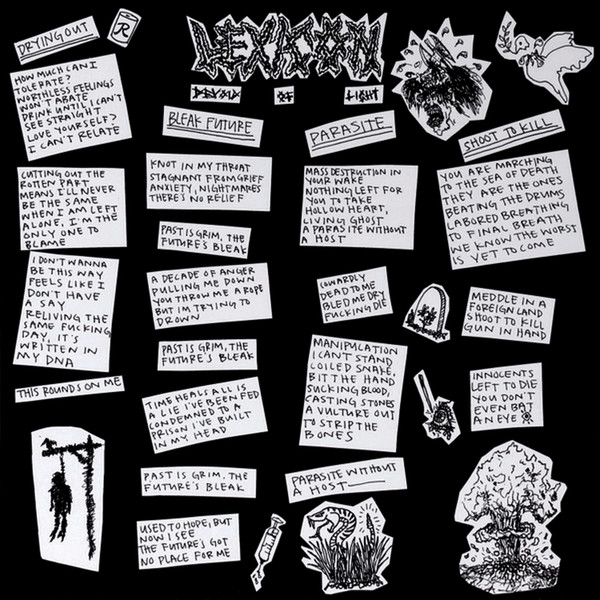 LEXICON
DEVOID OF LIGHT
DRYING OUT
R
HOW MUCH CAN I
TOLERATE?
WORTHLESS FEELINGS
WON'T ABATE
DRINK UNTIL I CAN'T
SEE STRAIGHT
LOVE YOURSELF?
I CAN'T RELATE
CUTTING OUT THE
ROTTEN PART
MEANS I'LL NEVER
BE THE SAME
WHEN I AM LEFT
ALONE, I'M THE
ONLY ONE TO
BLAME
I DON'T WANNA
BE THIS WAY
FEELS LIKE I
DON'T HAVE
A SAY
RELIVING THE
SAME FUCKING
DAY, IT'S
WRITTEN IN
MY DNA
THIS ROUNDS ON ME
BLEAK FUTURE
KNOT IN MY THROAT
STAGNANT FROM GRIEF
ANXIETY, NIGHTMARES
THERE'S NO RELIEF
PAST IS GRIM, THE
FUTURE'S BLEAK
A DECADE OF ANGER
PULLING ME DOWN
YOU THROW ME A ROPE
BUT IM TRYING TO
DROWN
PAST IS GRIM, THE
FUTURE'S BLEAK
TIME HEALS ALL IS
A LIE I'VE BEEN FED
CONDEMNED TO A
PRISON I'VE BUILT
IN MY HEAD
PAST IS GRIM, THE
FUTURE'S BLEAK
USED TO HOPE, BUT
NOW I SEE
THE FUTURE'S GOT
NO PLACE FOR ME
PARASITE
MASS DESTRUCTION IN
YOUR WAKE
NOTHING LEFT FOR
YOU TO TAKE
HOLLOW HEART,
LIVING GHOST
A PARASITE WITHOUT
A HOST
COWARDLY
DEAD TO ME
BLED ME DRY
FUCKING DIE
MANIPULATION
I CAN'T STAND
COILED SNAKE,
BIT THE HAND
SUCKING BLOOD,
CASTING STONES
A VULTURE OUT
TO STRIP THE
BONES
PARASITE WITHOUT
A HOST
SHOOT TO KILL
YOU ARE MARCHING
TO THE SEA OF DEATH
THEY ARE THE ONES
BEATING THE DRUMS
LABORED BREATHING
TO FINAL BREATH
WE KNOW THE WORST
IS YET TO COME
MEDDLE IN A
FOREIGN LAND
SHOOT TO KILL
GUN IN HAND
INNOCENTS
LEFT TO DIE
YOU DON'T
EVEN BAT
AN EYE